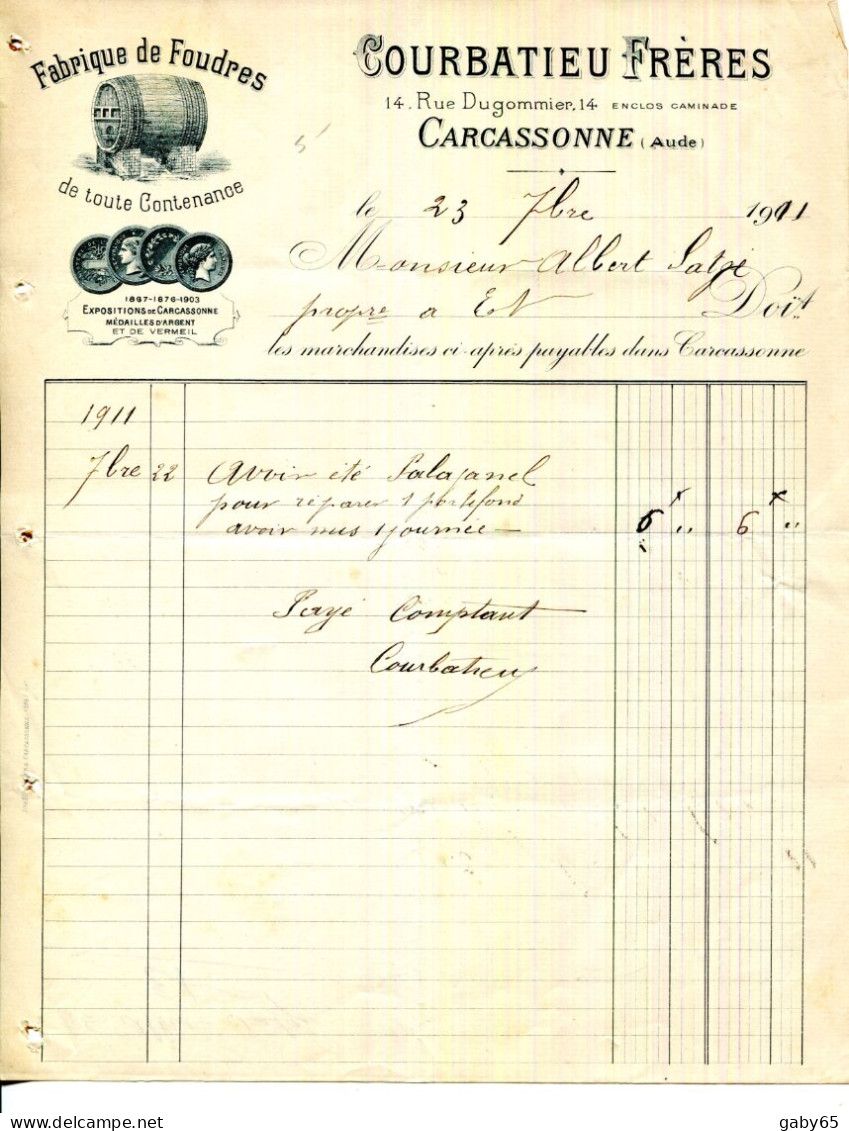 Fabrique de Foudres
de toute Contenance
1867-1876-1903
EXPOSITIONS DE CARCASSONNE
MÉDAILLES D'ARGENT
ET DE VERMEIL
COURBATIEU FRÈRES
14, Rue Dugommier, 14 ENCLOS CAMINADE
CARCASSONNE (Aude)
le 23 7bre 1911
Monsieur Albert
propre a Doit
les marchandises ci-après payables dans Carcassonne
1911
7bre 22 avoir été Palajanel
pour réparer 1 portefond
avoir mis 1 journée — 6 " 6 "
Payé Comptant
Courbatieu
gaby65